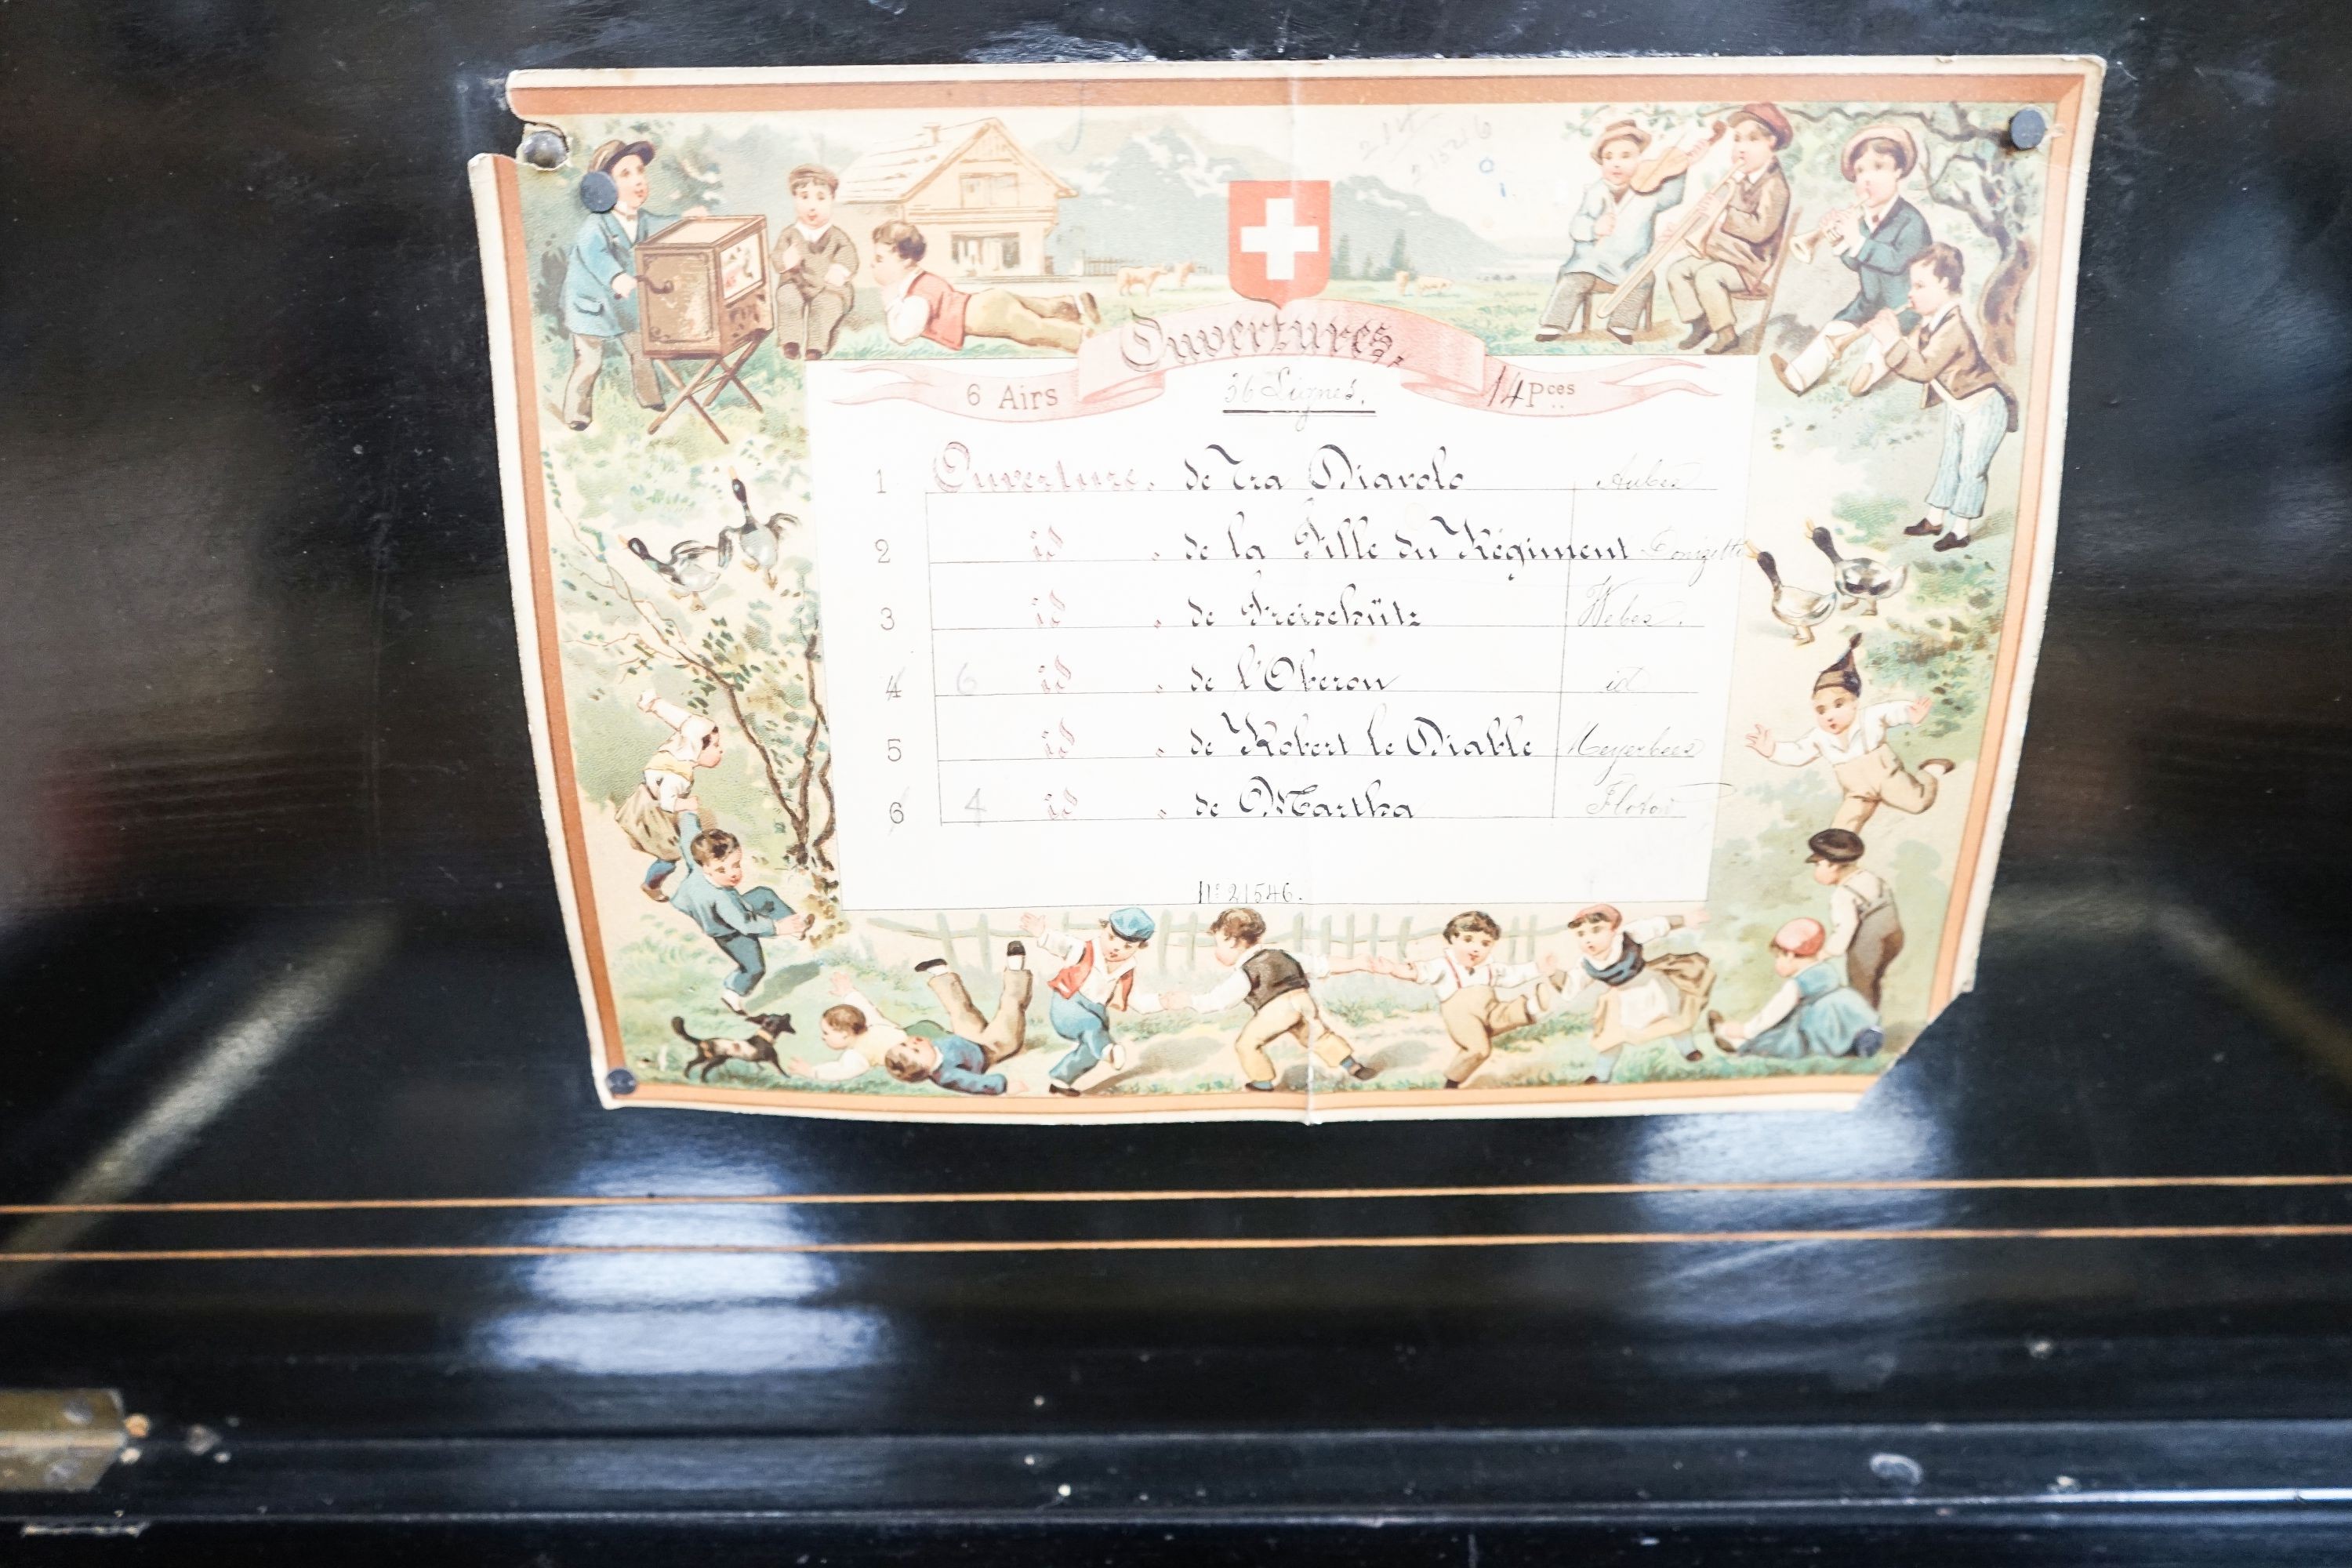 Ouvertures,
6 Airs 36 Lignes. 14 Pces
1 Ouverture. de Fra Diavolo Auber
2 id . de la Fille du Régiment Donizetti
3 id . de Freischütz Weber.
4 6 id . de l'Oberon id
5 id . de Robert le Diable Meyerbeer
6 4 id . de Martha Flotow
No 21546.